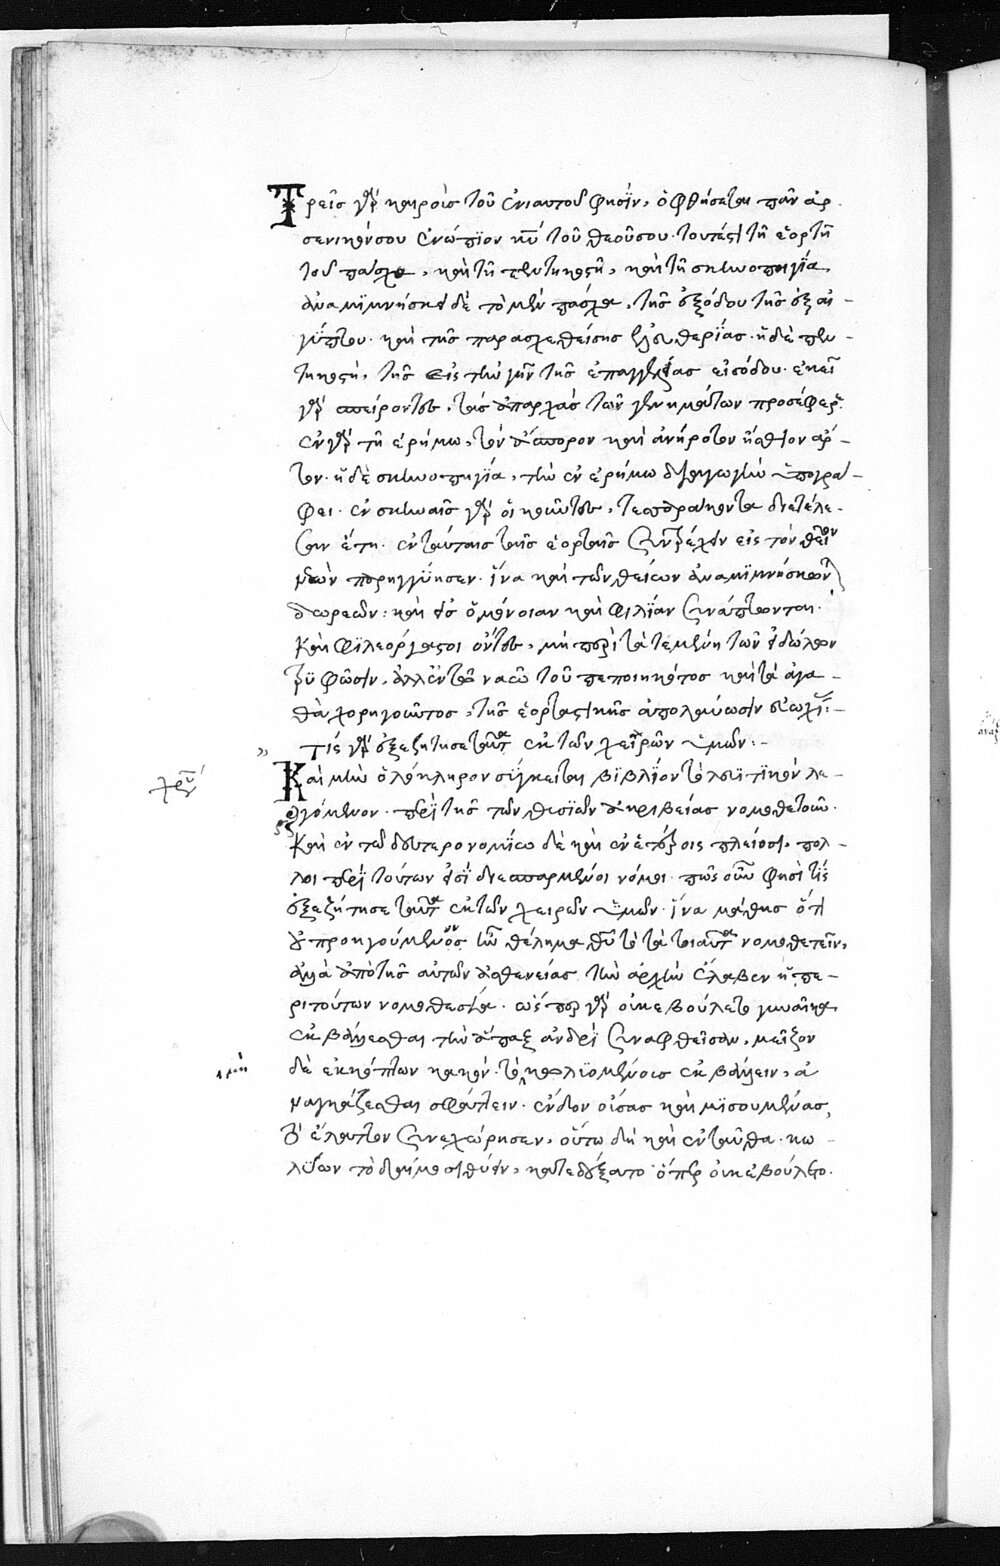 Τρεῖς γὰρ καιροὺς τοῦ ἐνιαυτοῦ φησὶν, ὀφθήσεται πᾶν ἀρ-
σενικόν σου ἐνώπιον κυ τοῦ θεοῦ σου. τουτέστι τῇ ἑορτῇ
τοῦ πάσχα, καὶ τῇ πεντηκοστῇ, καὶ τῇ σκηνοπηγίᾳ.
ἀναμιμνήσκει δὲ τὸ μὲν πάσχα, τῆς ἐξόδου τῆς ἐξ αἰ-
γύπτου. καὶ τῆς παρασχεθείσης ἐλευθερίας. ἡ δὲ πεν-
τηκοστὴ, τῆς εἰς τὴν γῆν τῆς ἐπαγγελίας εἰσόδου. ἐκεῖ
γὰρ σπείροντες, τὰς ἀπαρχὰς τῶν γεννημάτων προσέφερον.
ἐν γὰρ τῇ ἐρήμω, τὸν ἄσπορον καὶ ἀνήροτον ἤσθιον ἄρ-
τον. ἡ δὲ σκηνοπηγία, τὴν ἐν ἐρήμω διαγωγὴν ὑπογρά-
φει. ἐν σκηναῖς γὰρ οἰκοῦντες, τεσσαράκοντα διετέλε-
σαν ἔτη. ἐν ταύταις ταῖς ἑορταῖς συντρέχειν εἰς τὸν θεῖον
ναὸν παρηγγύησεν. ἵνα καὶ τῶν θείων ἀναμιμνήσκωνται
δωρεῶν: καὶ εἰς ὁμόνοιαν καὶ φιλίαν συνάπτωνται.
καὶ φιλεόρτασοι ὄντες, μὴ περὶ τὰ τεμένη τῶν εἰδώλων
τρυφῶσιν, ἀλλ' ἐν τῶ ναῶ τοῦ πεποιηκότος καὶ τὰ ἀγα-
θὰ χορηγοῦντος, τῆς ἑορταστικῆς ἀπολαύωσιν εὐωχίας:-
Τίς γὰρ ἐξεζήτησε ταῦτα ἐκ τῶν χειρῶν ὑμῶν:-
Καὶ μὴν ὁλόκληρον σύγκειται βιβλίον τὸ λευϊτικὸν λε-
γόμενον. περὶ τῆς τῶν θυσιῶν ἀκριβείας νομοθετοῦν.
καὶ ἐν τῶ δευτερονομίω δὲ καὶ ἐν ἑτέροις πλείοσι, πολ-
λοι περὶ τούτων εἰσὶ διεσπαρμένοι νόμοι. πῶς οὖν φησὶ τίς
ἐξεζήτησε ταῦτα ἐκ τῶν χειρῶν ὑμῶν. ἵνα μάθης ὅτι
οὐ προηγούμενον ἦν θέλημα θυ τὸ τὰ τοιαῦτα νομοθετεῖν,
ἀλλὰ ἀπὸ τῆς αὐτῶν ἀσθενείας τὴν ἀρχὴν ἔλαβεν ἡ πε-
ρὶ τούτων νομοθεσία. ὥσπερ γὰρ οὐκ ἐβούλετο γυναῖκα
ἐκβάλλεσθαι τὴν ἅπαξ ἀνδρὶ συναφθεῖσαν, μεῖζον
δὲ ἐκκόπτων κακὸν, τὸ κωλυομένους ἐκβάλλειν, ἀ
ναγκάζεσθαι σφάττειν. ἔνδον οὔσας καὶ μισουμένας,
τὸ ἔλαττον συνεχώρησεν, οὕτω δὴ καὶ ἐνταῦθα. κω-
λύων τὸ δαίμοσι θύειν, κατεδέξατο ὅπερ οὐκ ἐβούλετο.